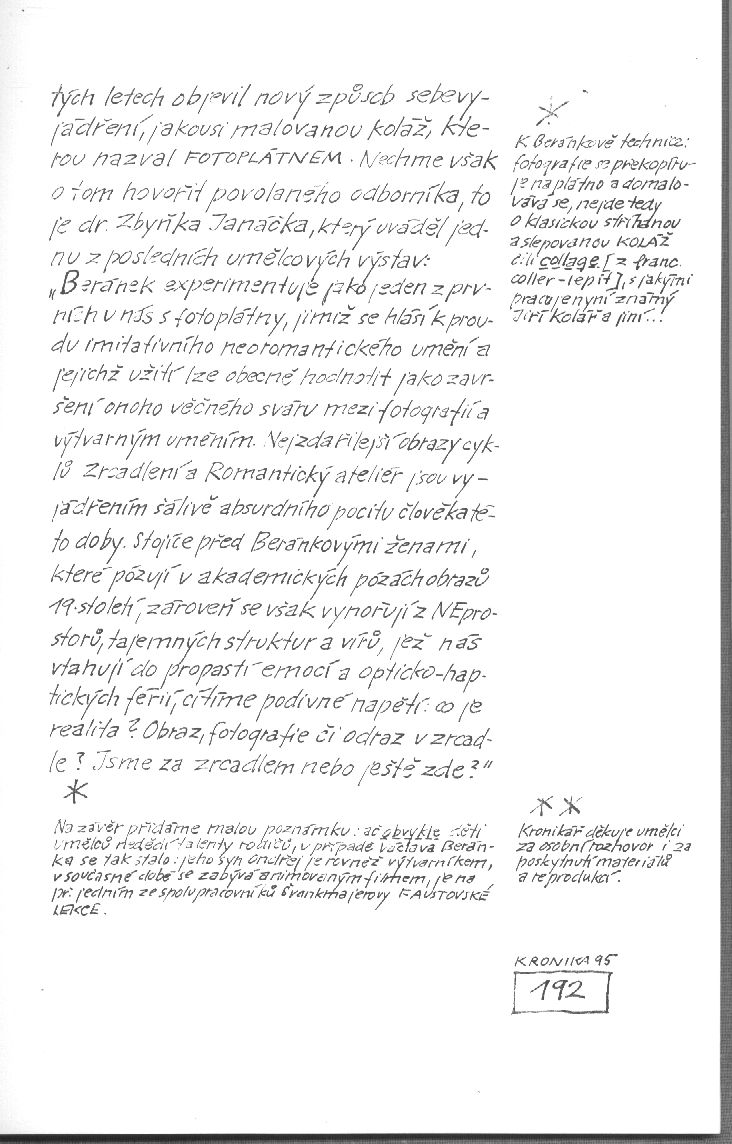 tých letech objevil nový způsob sebevy-
jádření, jakousi malovanou koláž, kte-
rou nazval FOTOPLÁTNEM. Nechme však
o tom hovořit povolaného odborníka, to
je dr. Zbyňka Janáčka, který uváděl jed-
nu z posledních umělcových výstav:
„Beránek experimentuje jako jeden z prv-
ních u nás s fotoplátny, jimiž se hlásí k prou-
du imitativního neoromantického umění a
jejichž užití lze obecně hodnotit jako završ-
šení onoho věčného sváru mezi fotografií a
výtvarným uměním. Nejzdařilejší obrazy cyk-
lů Zrcadlení a Romantický ateliér jsou vy-
jádřením šálivě absurdního pocitu člověka té-
to doby. Stojíce před Beránkovými ženami,
které pózují v akademických pózách obrazů
19. století, zároveň se však vynořují z NEpro-
storů, tajemných struktur a vírů, jež nás
vtahují do propastí emocí a opticko-hap-
tických férií, cítíme podivné napětí: co je
realita? Obraz, fotografie či odraz v zrcad-
le? Jsme za zrcadlem nebo ještě zde?"
*
Na závěr přidáme malou poznámku: ač obvykle děti
umělců nedědí talenty rodičů, v případě Václava Berán-
ka se tak stalo: jeho syn Ondřej je rovněž výtvarníkem,
v současné době se zabývá animovaným filmem, je na
př. jedním ze spolupracovníků Švankmajerovy FAUSTOVSKÉ
LEKCE.
*
K Beránkově technice:
fotografie se překopíru-
je na plátno a domalo-
vává se, nejde tedy
o klasickou stříhanou
a slepovanou KOLÁŽ
čili collage [z franc.
coller - lepit], s jakými
pracuje nyní známý
Jiří Kolář a jiní...!
* *
Kronikář děkuje umělci
za osobní rozhovor i za
poskytnutí materiálů
a reprodukcí.
KRONIKA 95
192